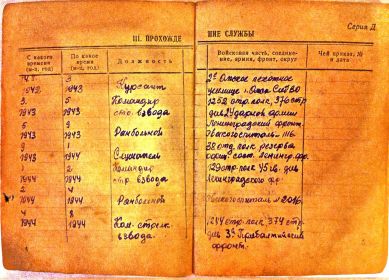 Серия Д
III. ПРОХОЖДЕ НИЕ СЛУЖБЫ
С какого времени (м-ц, год)
По какое время (м-ц, год)
Должность
Войсковая часть, соединение, армия, фронт, округ
Чей приказ, № и дата
1942
3
1943
Курсант
2е Омское пехотное
училище г. Омск СибВО
3
1943
5
1943
Командир
стр. взвода
1252 стр. полк, 376 стр
див 2 Ударной армии
Ленинградский фронт
5
1943
9
1943
Ранбольной
Эвакогоспиталь
9
1943
1
1944
Слушатель
38 отд. полк резерва
офиц. сост. Ленингр. фр.
2
1944
2
1944
Командир
стр. взвода
129 стр. полк 45 гв. див
Ленинградского фр.
2
1944
4
1944
Ранбольной
Эвакогоспиталь № 2016
4
1944
8
1944
Ком. стрелк.
взвода.
1244 стр. полк 374 стр.
див 3й Прибалтийский
фронт.